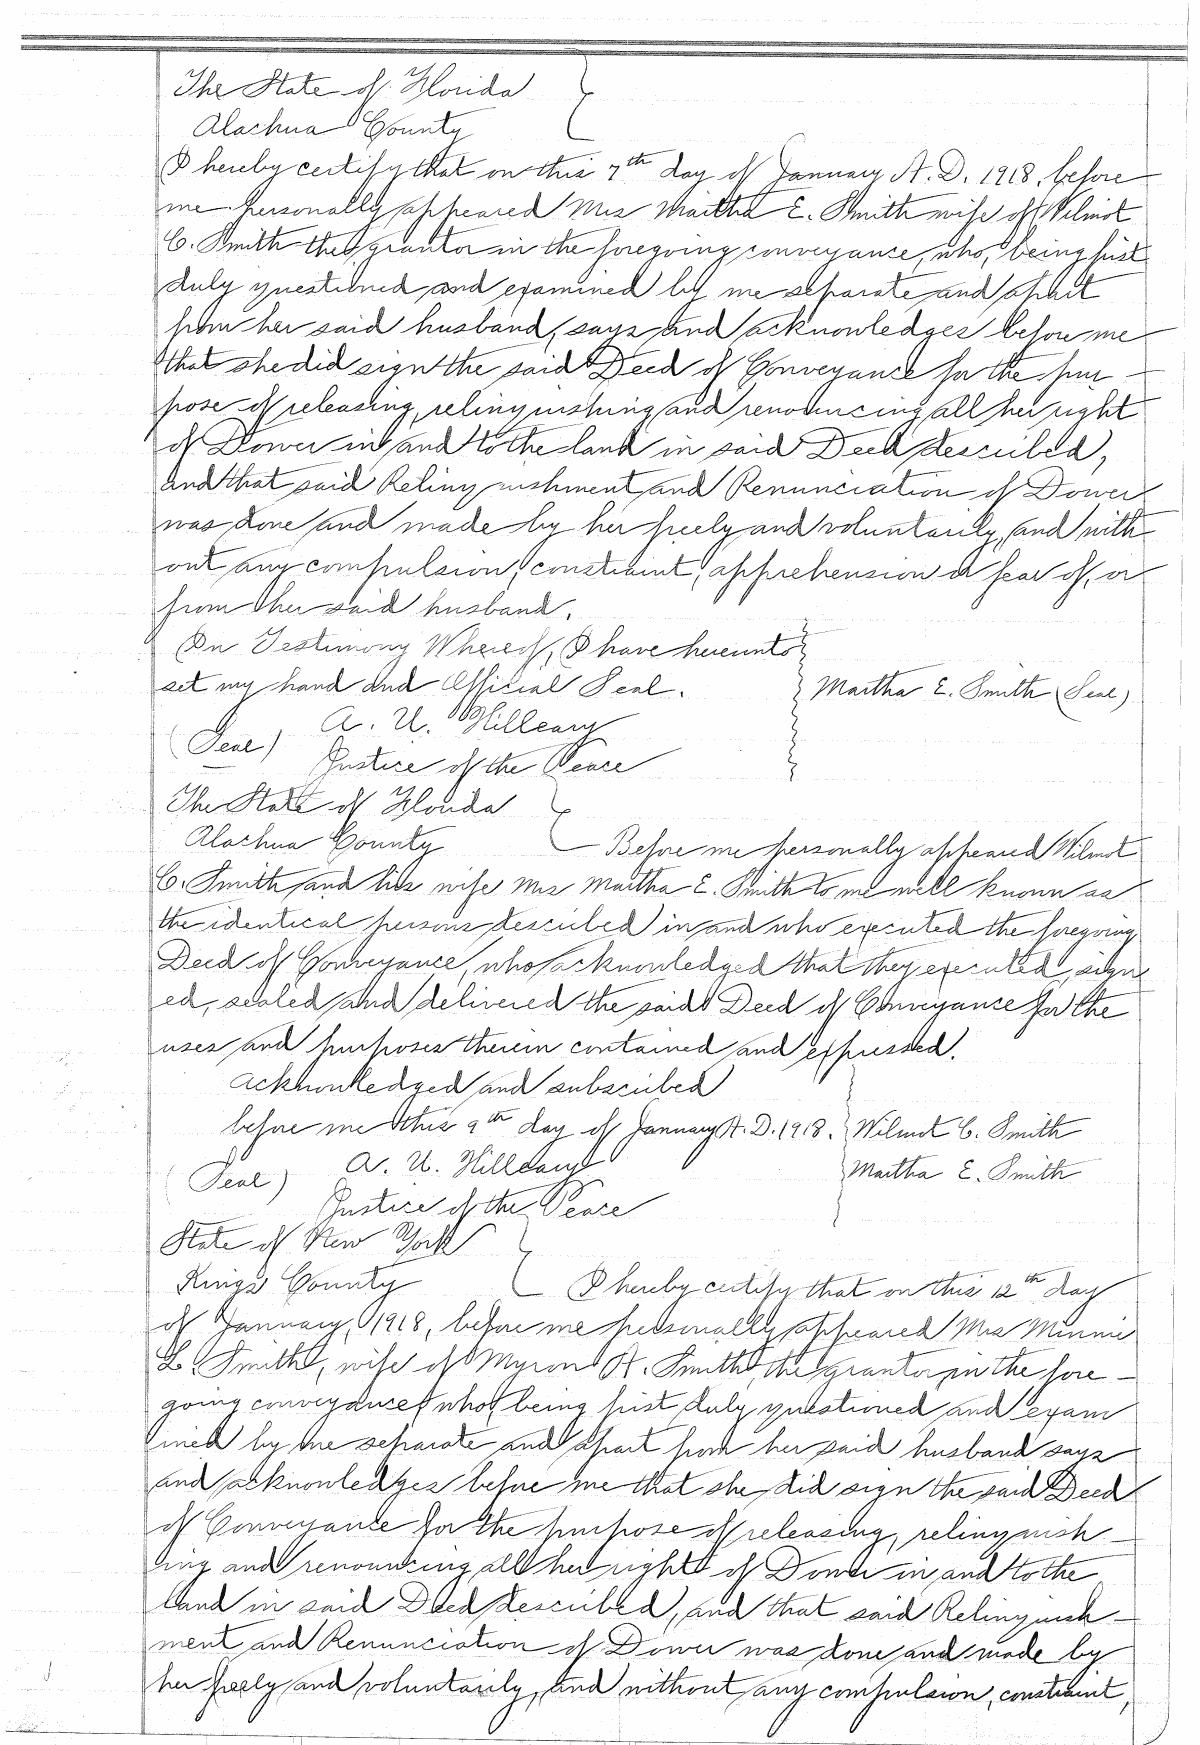 The State of Florida
Alachua County
I hereby certify that on this 7th day of January A. D. 1918, before
me personally appeared Mrs Martha E. Smith wife of Wilmot
C. Smith the grantor in the foregoing conveyance, who, being first
duly questioned and examined by me separate and apart
from her said husband, says and acknowledges before me
that she did sign the said Deed of Conveyance for the pur-
pose of releasing, relinquishing and renouncing all her right
of Dower in and to the land in said Deed described,
and that said Relinquishment and Renunciation of Dower
was done and made by her freely and voluntarily, and with
out any compulsion, constraint, apprehension or fear of, or
from her said husband.
In Testimony Whereof, I have hereunto
set my hand and Official Seal. Martha E. Smith (Seal)
A. U. Hilleary
(Seal)
Justice of the Peace
The State of Florida
Alachua County Before me personally appeared Wilmot
C. Smith and his wife Mrs Martha E. Smith to me well known as
the identical persons described in and who executed the foregoing
Deed of Conveyance, who acknowledged that they executed, sign
ed, sealed and delivered the said Deed of Conveyance for the
uses and purposes therein contained and expressed.
Acknowledged and subscribed
before me this 9th day of January A. D. 1918. Wilmot C. Smith
A. U. Hilleary Martha E. Smith
(Seal)
Justice of the Peace
State of New York
Kings County I hereby certify that on this 12th day
of January, 1918, before me personally appeared Mrs Minnie
L. Smith, wife of Myron H. Smith, the grantor in the fore-
going conveyance, who, being first duly questioned and exam
ined by me separate and apart from her said husband says
and acknowledges before me that she did sign the said Deed
of Conveyance for the purpose of releasing, relinquish-
ing and renouncing all her right of Dower in and to the
land in said Deed described, and that said Relinquish-
ment and Renunciation of Dower was done and made by
her freely and voluntarily, and without any compulsion, constraint,